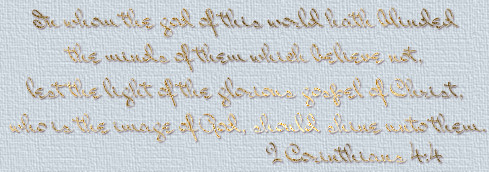 In whom the god of this world hath blinded
the minds of them which believe not,
lest the light of the glorious gospel of Christ,
who is the image of God, should shine unto them.
2 Corinthians 4:4